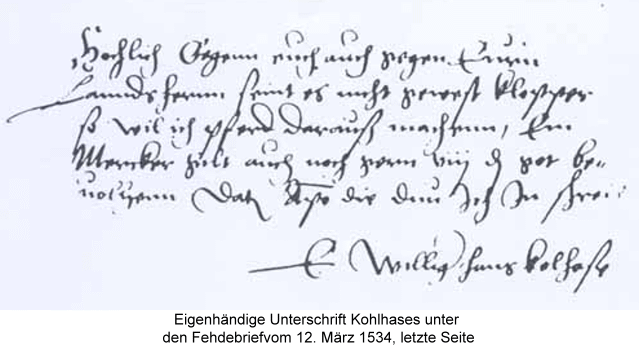 Hochlich Gegenn euch auch gegen Eurin
Lanndsherrnn seint es nicht gewest klepper
so wil ich pferd darauß machenn, Ein
Mercker gilt auch noch gern viij d got be-
Datz die Ich In schrei
E Willig hans kolhase
Eigenhändige Unterschrift Kohlhases unter
den Fehdebriefvom 12. März 1534, letzte Seite